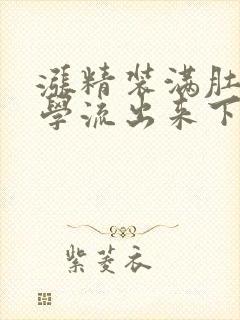 漲精装满肚
學流出来下
紫菱衣